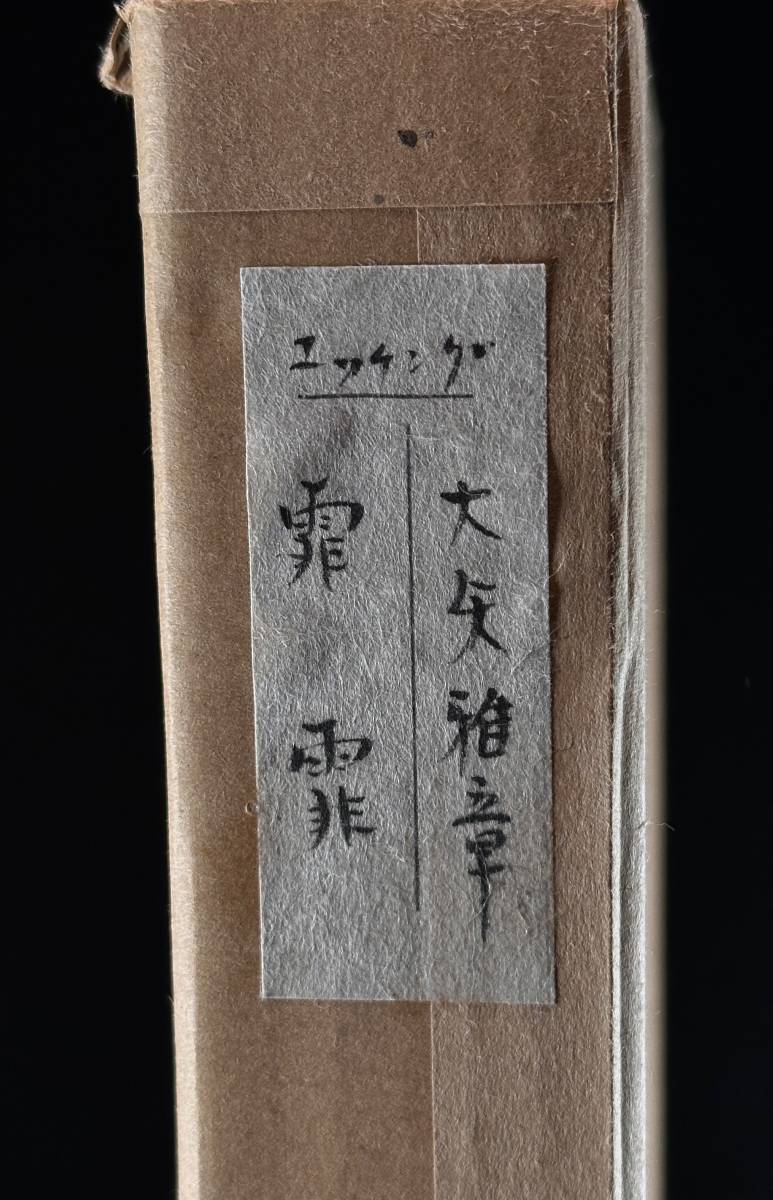 エッチング
大矢雅章
霏霏